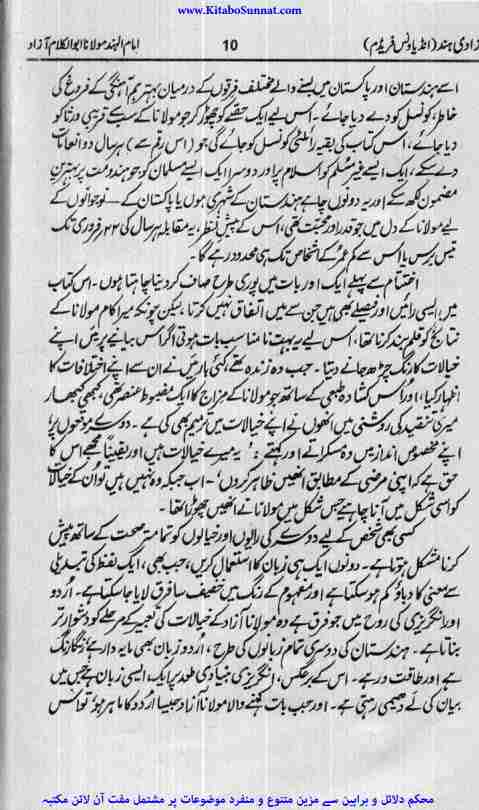 www.KitaboSunnat.com
زادی ہند (انڈیا ونس فریڈم) 10 امام الہند مولانا ابوالکلام آزاد
اسے ہندستان اور پاکستان میں بسنے والے مختلف فرقوں کے درمیان بہتر ہم آہنگی کے فروغ کی
خاطر، کونسل کو دے دیا جائے۔ اس لیے ایک حصّے کو چھوڑ کر جو مولانا کے سب سے قریبی ورثا کو
دیا جائے، اس کتاب کی بقیہ رائلٹی کونسل کو جائے گی جو (اس رقم سے) ہر سال دو انعامات
دے سکے، ایک ایسے غیر مسلم کو اسلام پر اور دوسرا ایک ایسے مسلمان کو جو ہندومت پر بہترین
مضمون لکھ سکے اور یہ دونوں چاہے ہندستان کے شہری ہوں یا پاکستان کے۔ نوجوانوں کے
لیے مولانا کے دل میں جو قدر اور محبّت تھی، اس کے پیشِ نظر، یہ مقابلہ ہر سال کی ۲۲ فروری تک
تیس برس یا اس سے کم عمر کے اشخاص تک ہی محدود رہے گا۔
اختتام سے پہلے ایک اور بات میں پوری طرح صاف کر دینا چاہتا ہوں۔ اس کتاب
میں، ایسی رائیں اور فیصلے بھی ہیں جن سے میں اتفاق نہیں کرتا، لیکن چونکہ میرا کام مولانا کے
نتائج کو قلم بند کرنا تھا، اس لیے یہ بہت نامناسب بات ہوتی اگر اس بیانیے پر میں اپنے
خیالات کا رنگ چڑھ جانے دیتا۔ جب وہ زندہ تھے، کئی بار میں نے ان سے اپنے اختلافات کا
اظہار کیا، اور اس کشادہ طبعی کے ساتھ جو مولانا کے مزاج کا ایک مضبوط عنصر تھی، کبھی کبھار
میری تنقید کی روشنی میں انھوں نے اپنے خیالات میں ترمیم بھی کی ہے۔ دوسرے موقعوں پر،
اپنے مخصوص انداز میں وہ مسکراتے اور کہتے: 'یہ میرے خیالات ہیں اور یقیناً مجھے اس کا
حق ہے کہ اپنی مرضی کے مطابق انھیں ظاہر کروں'۔ اب جبکہ وہ نہیں ہیں تو اُن کے خیالات
کو اسی شکل میں آنا چاہیے جس شکل میں مولانا نے انھیں چھوڑا تھا۔
کسی بھی شخص کے لیے دوسرے کی رایوں اور خیالوں کو تمام تر صحت کے ساتھ پیش
کرنا مشکل ہوتا ہے۔ دونوں ایک ہی زبان کا استعمال کریں، جب بھی، ایک لفظ کی تبدیلی
سے معنی کا دباؤ کم ہو سکتا ہے اور مفہوم کے رنگ میں خفیف سا فرق لایا جا سکتا ہے۔ اُردو
اور انگریزی کی روح میں جو فرق ہے وہ مولانا آزاد کے خیالات کی تعبیر کے مرحلے کو دشوار تر
بناتا ہے۔ ہندستان کی دوسری تمام زبانوں کی طرح، اُردو زبان بھی مایہ دار ہے، رنگا رنگ
ہے اور طاقت ور ہے۔ اس کے برعکس، انگریزی بنیادی طور پر ایک ایسی زبان ہے جس میں
بیان کی لَے دھیمی رہتی ہے۔ اور جب بات کہنے والا مولانا آزاد جیسا اُردو کا ماہر ہو، تو اس
محکم دلائل و براہین سے مزین متنوع و منفرد موضوعات پر مشتمل مفت آن لائن مکتبہ